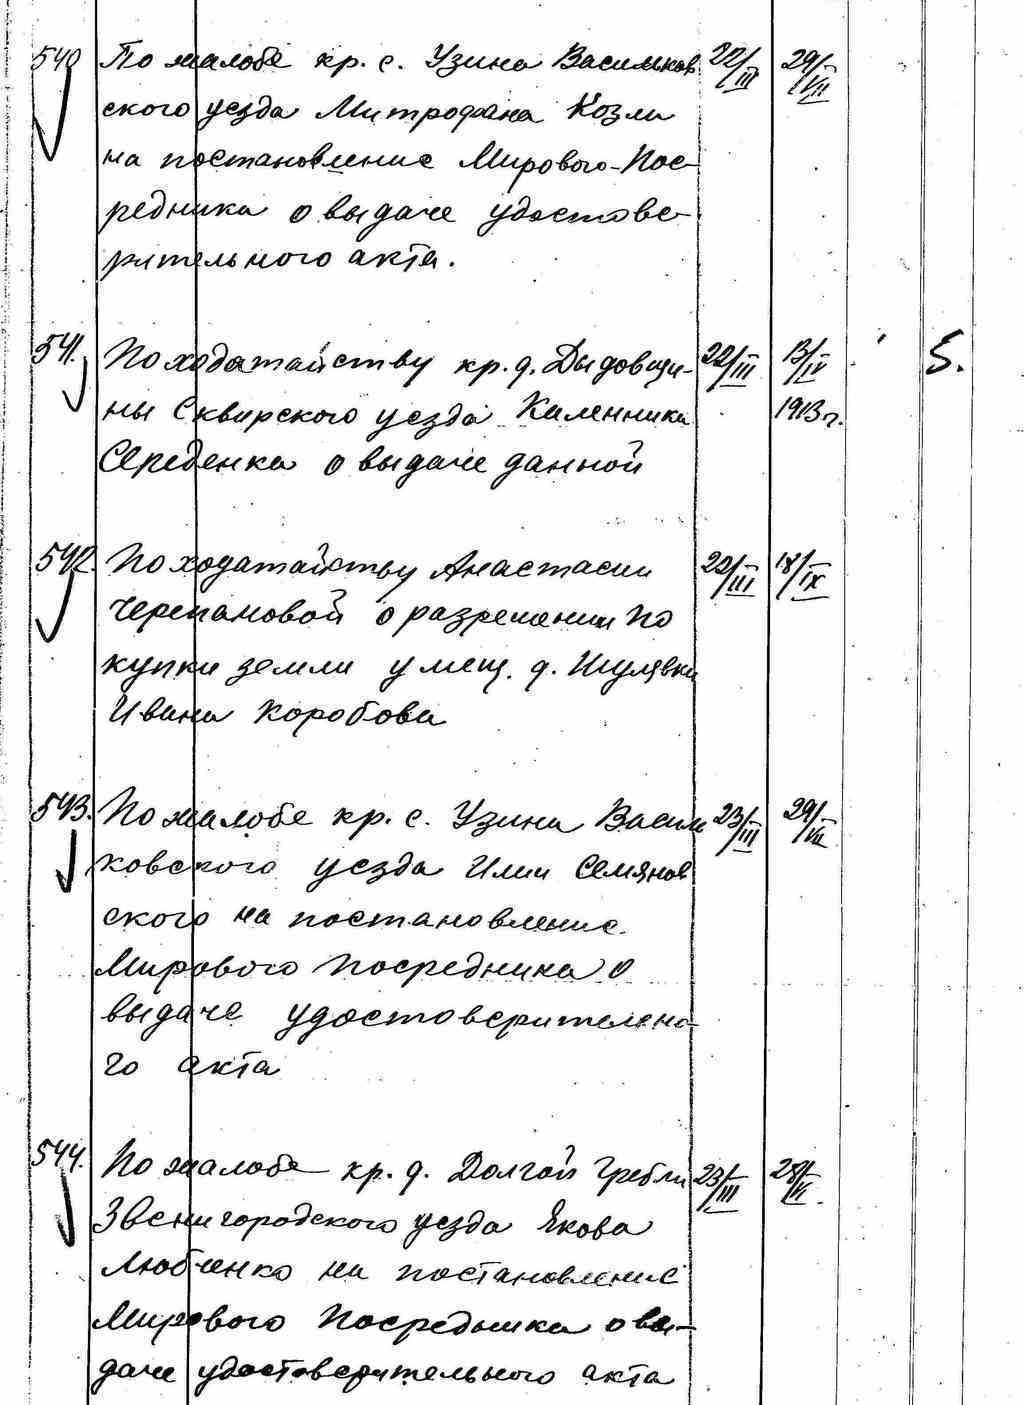 540 По жалобе кр. с. Узина Васильков 22/III 29/VII
ского уезда Митрофана Козли
на постановление Мирового Пос-
редника о выдаче удостове-
рительного акта.
541. По ходатайству кр. д. Дыдовщи- 22/III 13/IV 5.
ны Сквирского уезда Каленника 1913 г.
Середенка о выдаче данной
542. По ходатайству Анастасии 22/III 18/IX
Черепановой о разрешении по
купки земли у мещ. д. Шулявки
Ивана Коробова
543. По жалобе кр. с. Узина Василь 23/III 29/VII
ковского уезда Илии Семянов
ского на постановление
Мирового Посредника о
выдаче удостоверительно-
го акта
544. По жалобе кр. д. Долгой Гребли 23/III
Звенигородского уезда Якова
Любченко на постановление
Мирового Посредника о вы-
даче удостоверительного акта